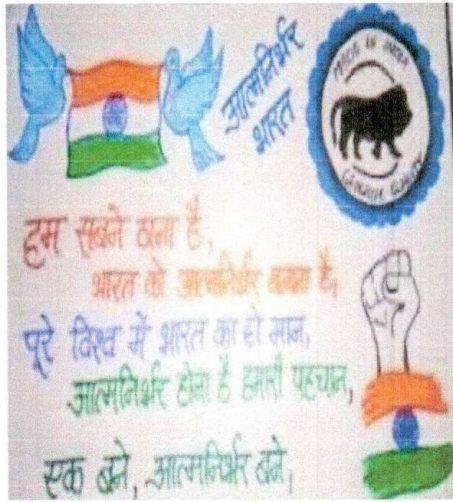 आत्मनिर्भर
भारत
MADE IN INDIA
हम सबने ठाना है,
भारत को आत्मनिर्भर बनाना है,
पूरे विश्व में भारत का हो मान,
आत्मनिर्भर होना है हमारी पहचान,
एक बने, आत्मनिर्भर बने,